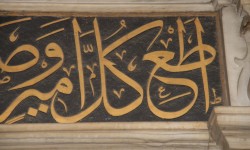 اطع كل امير وص